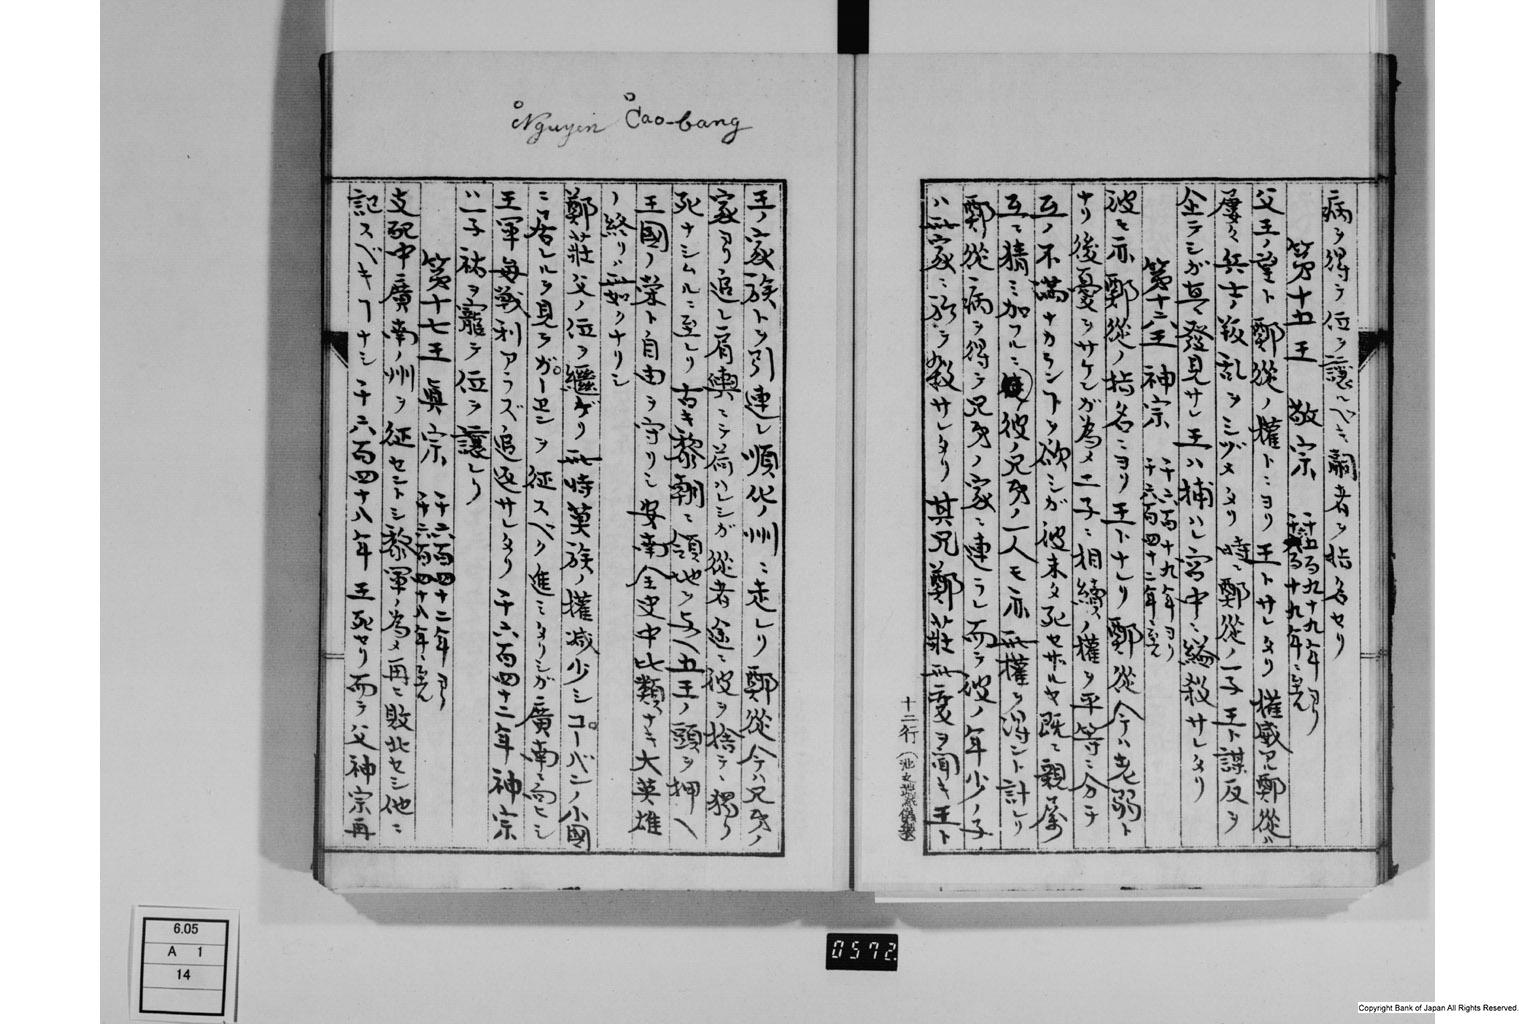 病ヲ得テ位ヲ譲ルベキ嗣者ヲ指名セリ
第十五王 敬宗 千五百九十九年ヨリ
千六百十九年ニ至ル
父王ノ望ト鄭從ノ權トニヨリ王トサレタリ權威アル鄭從ハ
屡々兵士ノ叛乱ヲシヅメタリ時ニ鄭從ノ一子王ト謀反ヲ
企テシガ其發見サレ王ハ捕ハレ宮中ニ縊殺サレタリ
第十六王 神宗 千六百十九年ヨリ
千六百四十二年ニ至ル
彼モ亦鄭從ノ指名ニヨリ王トナレリ鄭從今ハ老弱ト
ナリ後憂ヲサケンガ為メ二子ニ相續ノ權ヲ平等ニ分テ
互ノ不満ナカランコトヲ欲シガ彼未タ死セザルヤ既ニ親屬
互ニ猜ミ加フルニ彼ノ兄弟ノ一人モ亦此權ヲ得ント計レリ
鄭從ハ病ヲ得テ兄弟ノ家ニ連ラレ而テ彼ノ年少ノ子
ハ此家ニ於テ殺サレタリ其兄鄭莊此変ヲ聞キ王ト
十二行
Nguyen Cao-bang
王ノ家族トヲ引連レ順化ノ州ニ走レリ鄭從今ハ兄弟ノ
家ヨリ追レ肩輿ニテ荷ハレシガ從者途ニ彼ヲ捨テ獨リ
死ナシムルニ至レリ古キ黎朝ニ領地ヲ与ヘ五王ノ頭ヲ押ヘ
王國ノ栄ト自由ヲ守リシ安南全史中比類ナキ大英雄
ノ終リ此ノ如クナリシ
鄭莊父ノ位ヲ繼ゲリ此時莫族ノ權减少シコーバンノ小國
ニ居レルヲ見テガーエンヲ征スベク進ミタリシガ廣南ニ向ヒシ
王軍毎戦利アラズ追返サレタリ千六百四十二年神宗
ハ一子祐ヲ寵テ位ヲ譲レリ
第十七王 眞宗 千六百四十二年ヨリ
千六百四十八年ニ至ル
支配中廣南ノ州ヲ征セントシ黎軍ノ為メ再ニ敗北セシ他ニ
記スベキコトナシ千六百四十八年王死セリ而テ父神宗再
0572
6.05
A 1
14
Copyright Bank of Japan All Rights Reserved.